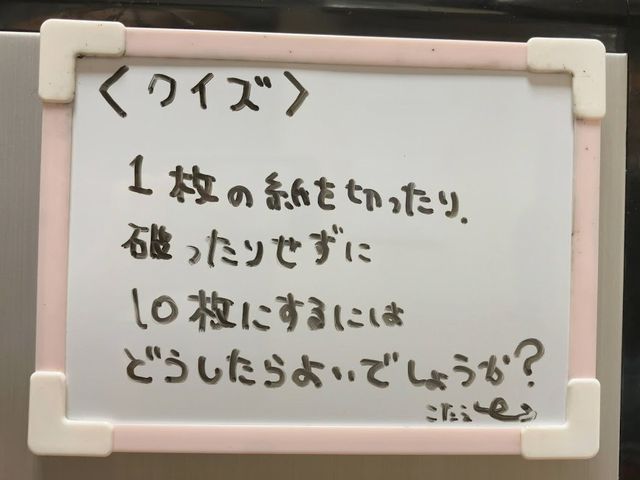 〈クイズ〉
1枚の紙を切ったり、
破ったりせずに
10枚にするには
どうしたらよいでしょうか?
こたえ